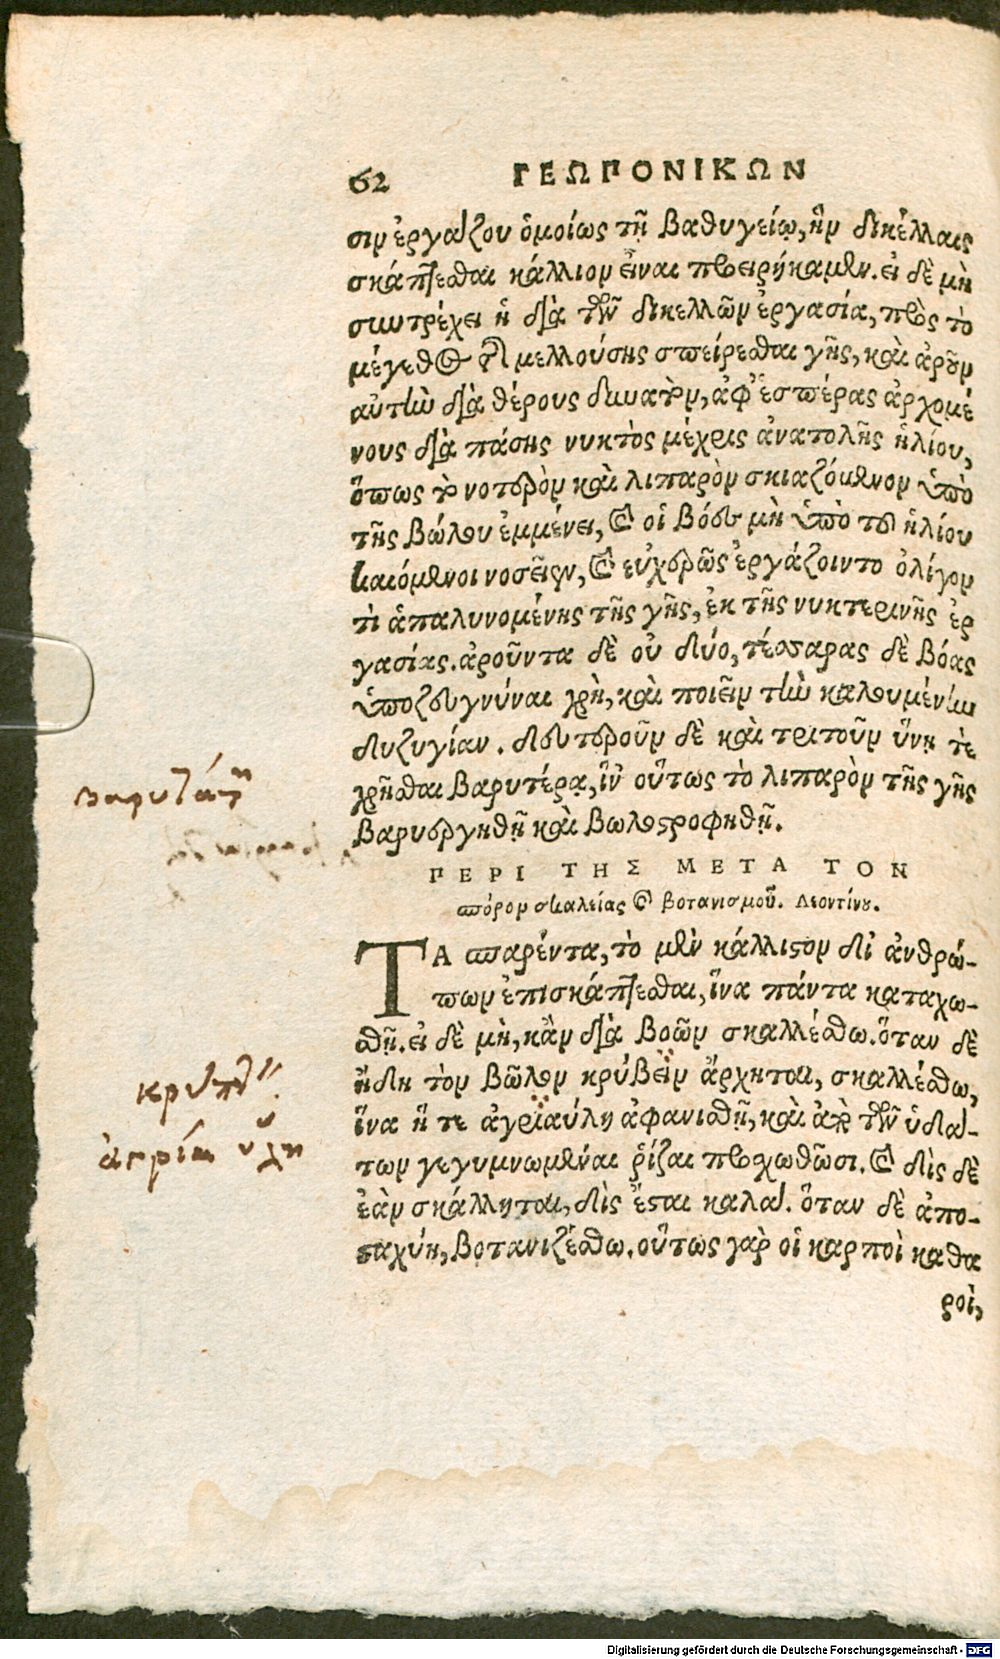 62 ΓΕΩΠΟΝΙΚΩΝ
σιν ἐργάζου ὁμοίως τῇ βαθυγείῳ, ἣν δικέλλαις
σκάπτεσθαι κάλλιον εἶναι προειρήκαμεν. εἰ δὲ μὴ
συντρέχει ἡ διὰ τῶν δικελλῶν ἐργασία, πρὸς τὸ
μέγεθος τῆς μελλούσης σπείρεσθαι γῆς, καὶ ἀροῦν
αὐτὴν διὰ θέρους δυνατὸν, ἀφ' ἑσπέρας ἀρχομέ
νους διὰ πάσης νυκτὸς μέχρις ἀνατολῆς ἡλίου,
ὅπως τὸ νοτερὸν καὶ λιπαρὸν σκιαζόμενον ὑπὸ
τῆς βώλου ἐμμένει, καὶ οἱ βόες μὴ ὑπὸ τοῦ ἡλίου
καιόμενοι νοσεῖεν, καὶ εὐχερῶς ἐργάζοιντο ὀλίγον
τὶ ἁπαλυνομένης τῆς γῆς, ἐκ τῆς νυκτερινῆς ἐρ
γασίας. ἀροῦντα δὲ οὐ δύο, τέσσαρας δὲ βόας
ὑποζευγνύναι χρὴ, καὶ ποιεῖν τὴν καλουμένην
δυζυγίαν. δευτεροῦν δὲ καὶ τριτοῦν ὕνῃ τὲ
χρῆσθαι βαρυτέρᾳ, ἵν' οὕτως τὸ λιπαρὸν τῆς γῆς
βαρυεργηθῇ καὶ βωλοστροφηθῇ.
ΠΕΡΙ ΤΗΣ ΜΕΤΑ ΤΟΝ
σπόρον σκαλείας καὶ βοτανισμοῦ. Λεοντίνου.
ΤΑ σπαρέντα, τὸ μὲν κάλλιστον δι' ἀνθρώ-
πων ἐπισκάπτεσθαι, ἵνα πάντα καταχω-
σθῇ. εἰ δὲ μὴ, κἂν διὰ βοῶν σκαλλέσθω. ὅταν δὲ
ἤδη τὸν βῶλον κρύβειν ἄρχηται, σκαλλέσθω,
ἵνα ἥ τε ἀγριαύλη ἀφανισθῇ, καὶ ἀπὸ τῶν ὑδά-
των γεγυμνωμέναι ῥίζαι προχωθῶσι. καὶ δὶς δὲ
ἐὰν σκάλληται, δὶς ἔσται καλά. ὅταν δὲ ἀπο-
σταχύῃ, βοτανιζέσθω. οὕτως γὰρ οἱ καρποὶ καθα
ροὶ,
κρύπτ
ἀγρία ὕλη